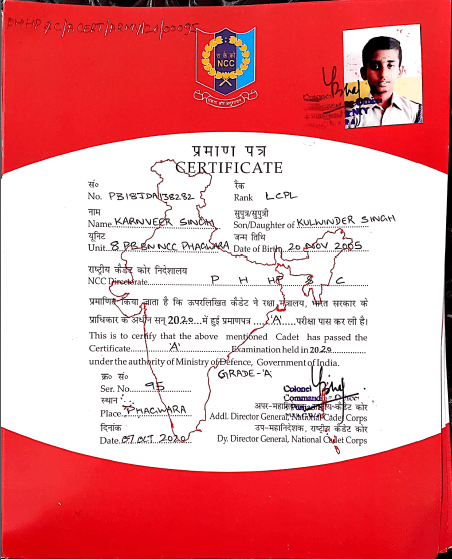 PHHP&C/ACERT/ARMY/20/00095
रा कै को
NCC
एकता और अनुशासन
प्रमाण पत्र
CERTIFICATE
सं० रैंक
No. PB18JDA138282 Rank LCPL
नाम सुपुत्र/सुपुत्री
Name KARNVEER SINGH Son/Daughter of KULWINDER SINGH
यूनिट जन्म तिथि
Unit 8 PB BN NCC PHAGWARA Date of Birth 20 NOV 2005
राष्ट्रीय कैडेट कोर निदेशालय
NCC Directorate P H HP & C
प्रमाणित किया जाता है कि ऊपरलिखित कैडेट ने रक्षा मंत्रालय, भारत सरकार के
प्राधिकार के अधीन सन् 2020 में हुई प्रमाणपत्र 'A' परीक्षा पास कर ली है।
This is to certify that the above mentioned Cadet has passed the
Certificate 'A' Examination held in 2020
under the authority of Ministry of Defence, Government of India.
क्र० सं० GRADE-'A'
Ser. No. 95 Colonel
स्थान
Place PHAGWARA अपर-महानिदेशक, राष्ट्रीय कैडेट कोर
Addl. Director General, National Cadet Corps
दिनांक उप-महानिदेशक, राष्ट्रीय कैडेट कोर
Date 07 OCT 2020 Dy. Director General, National Cadet Corps